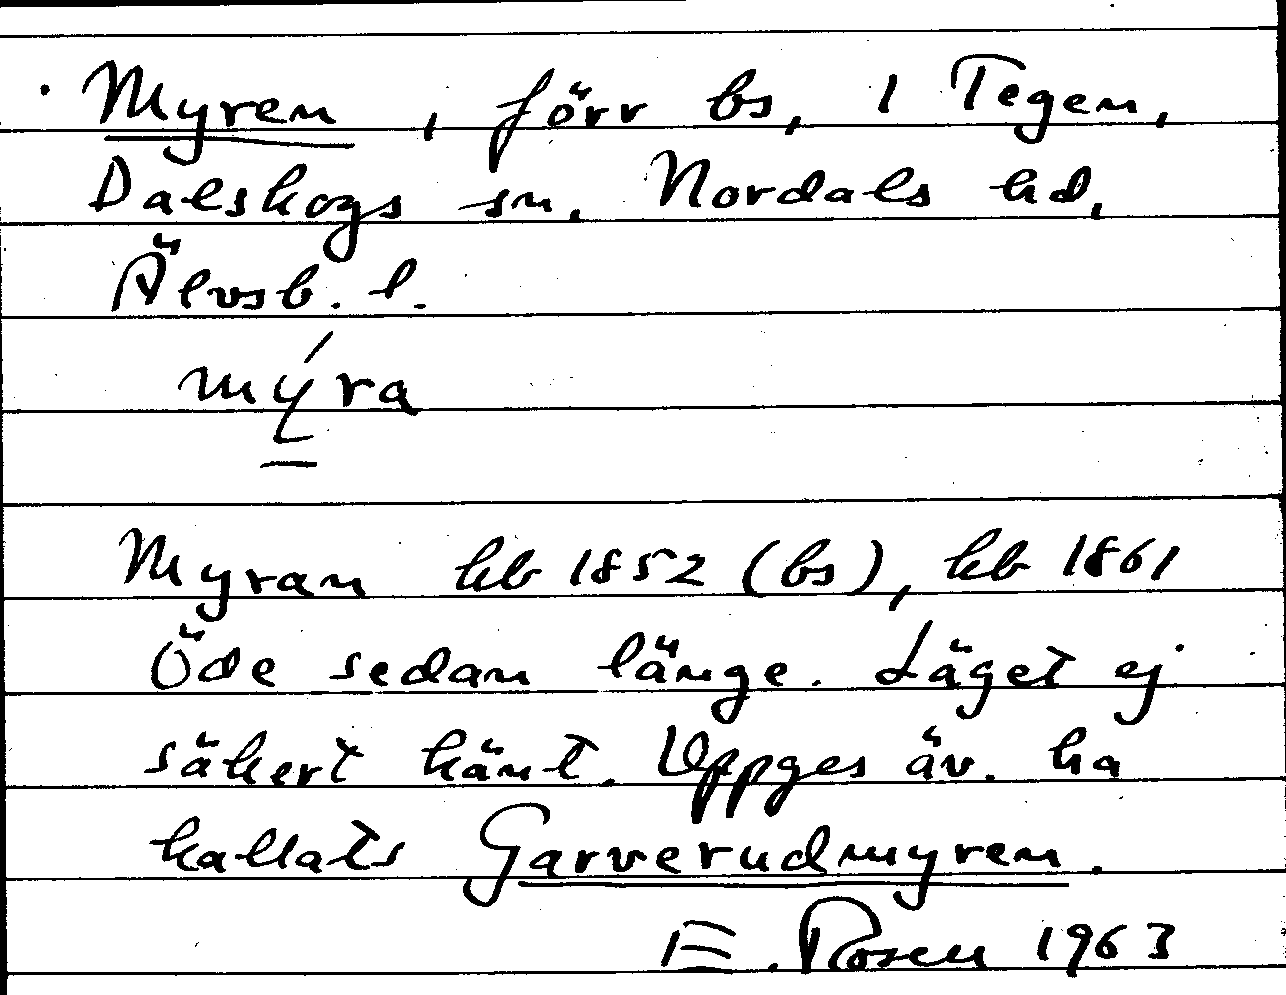 Myren, förr bs, 1 Tegen,
Dalskogs sn. Nordals hd,
Älvsb. l.
mýra
Myran hb 1852 (bs), hb 1861
Öde sedan länge. Läget ej
säkert känt. Uppges äv. ha
kallats Garverudmyren.
E. Rosen 1963